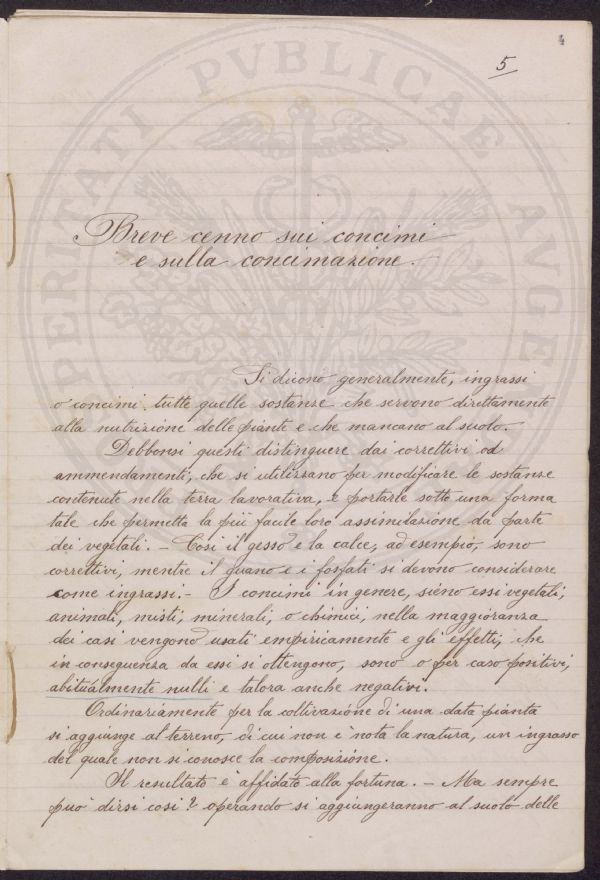 4
5
PERITATI PVBLICAE AVGEN
Breve cenno sui concimi
e sulla concimazione.
Si dicono generalmente, ingrassi
o concimi tutte quelle sostanze che servono direttamente
alla nutrizione delle piante e che mancano al suolo.
Debbonsi questi distinguere dai correttivi od
ammendamenti, che si utilizzano per modificare le sostanze
contenute nella terra lavorativa, e portarle sotto una forma
tale che permetta la più facile loro assimilazione da parte
dei vegetali. – Così il gesso e la calce, ad esempio, sono
correttivi, mentre il guano e i fosfati si devono considerare
come ingrassi. – I concimi in genere, sieno essi vegetali,
animali, misti, minerali, o chimici, nella maggioranza
dei casi vengono usati empiricamente e gli effetti, che
in conseguenza da essi si ottengono, sono o per caso positivi,
abitualmente nulli e talora anche negativi.
Ordinariamente per la coltivazione di una data pianta
si aggiunge al terreno, di cui non è nota la natura, un ingrasso
del quale non si conosce la composizione.
Il resultato è affidato alla fortuna. – Ma sempre
può dirsi così? operando si aggiungeranno al suolo delle